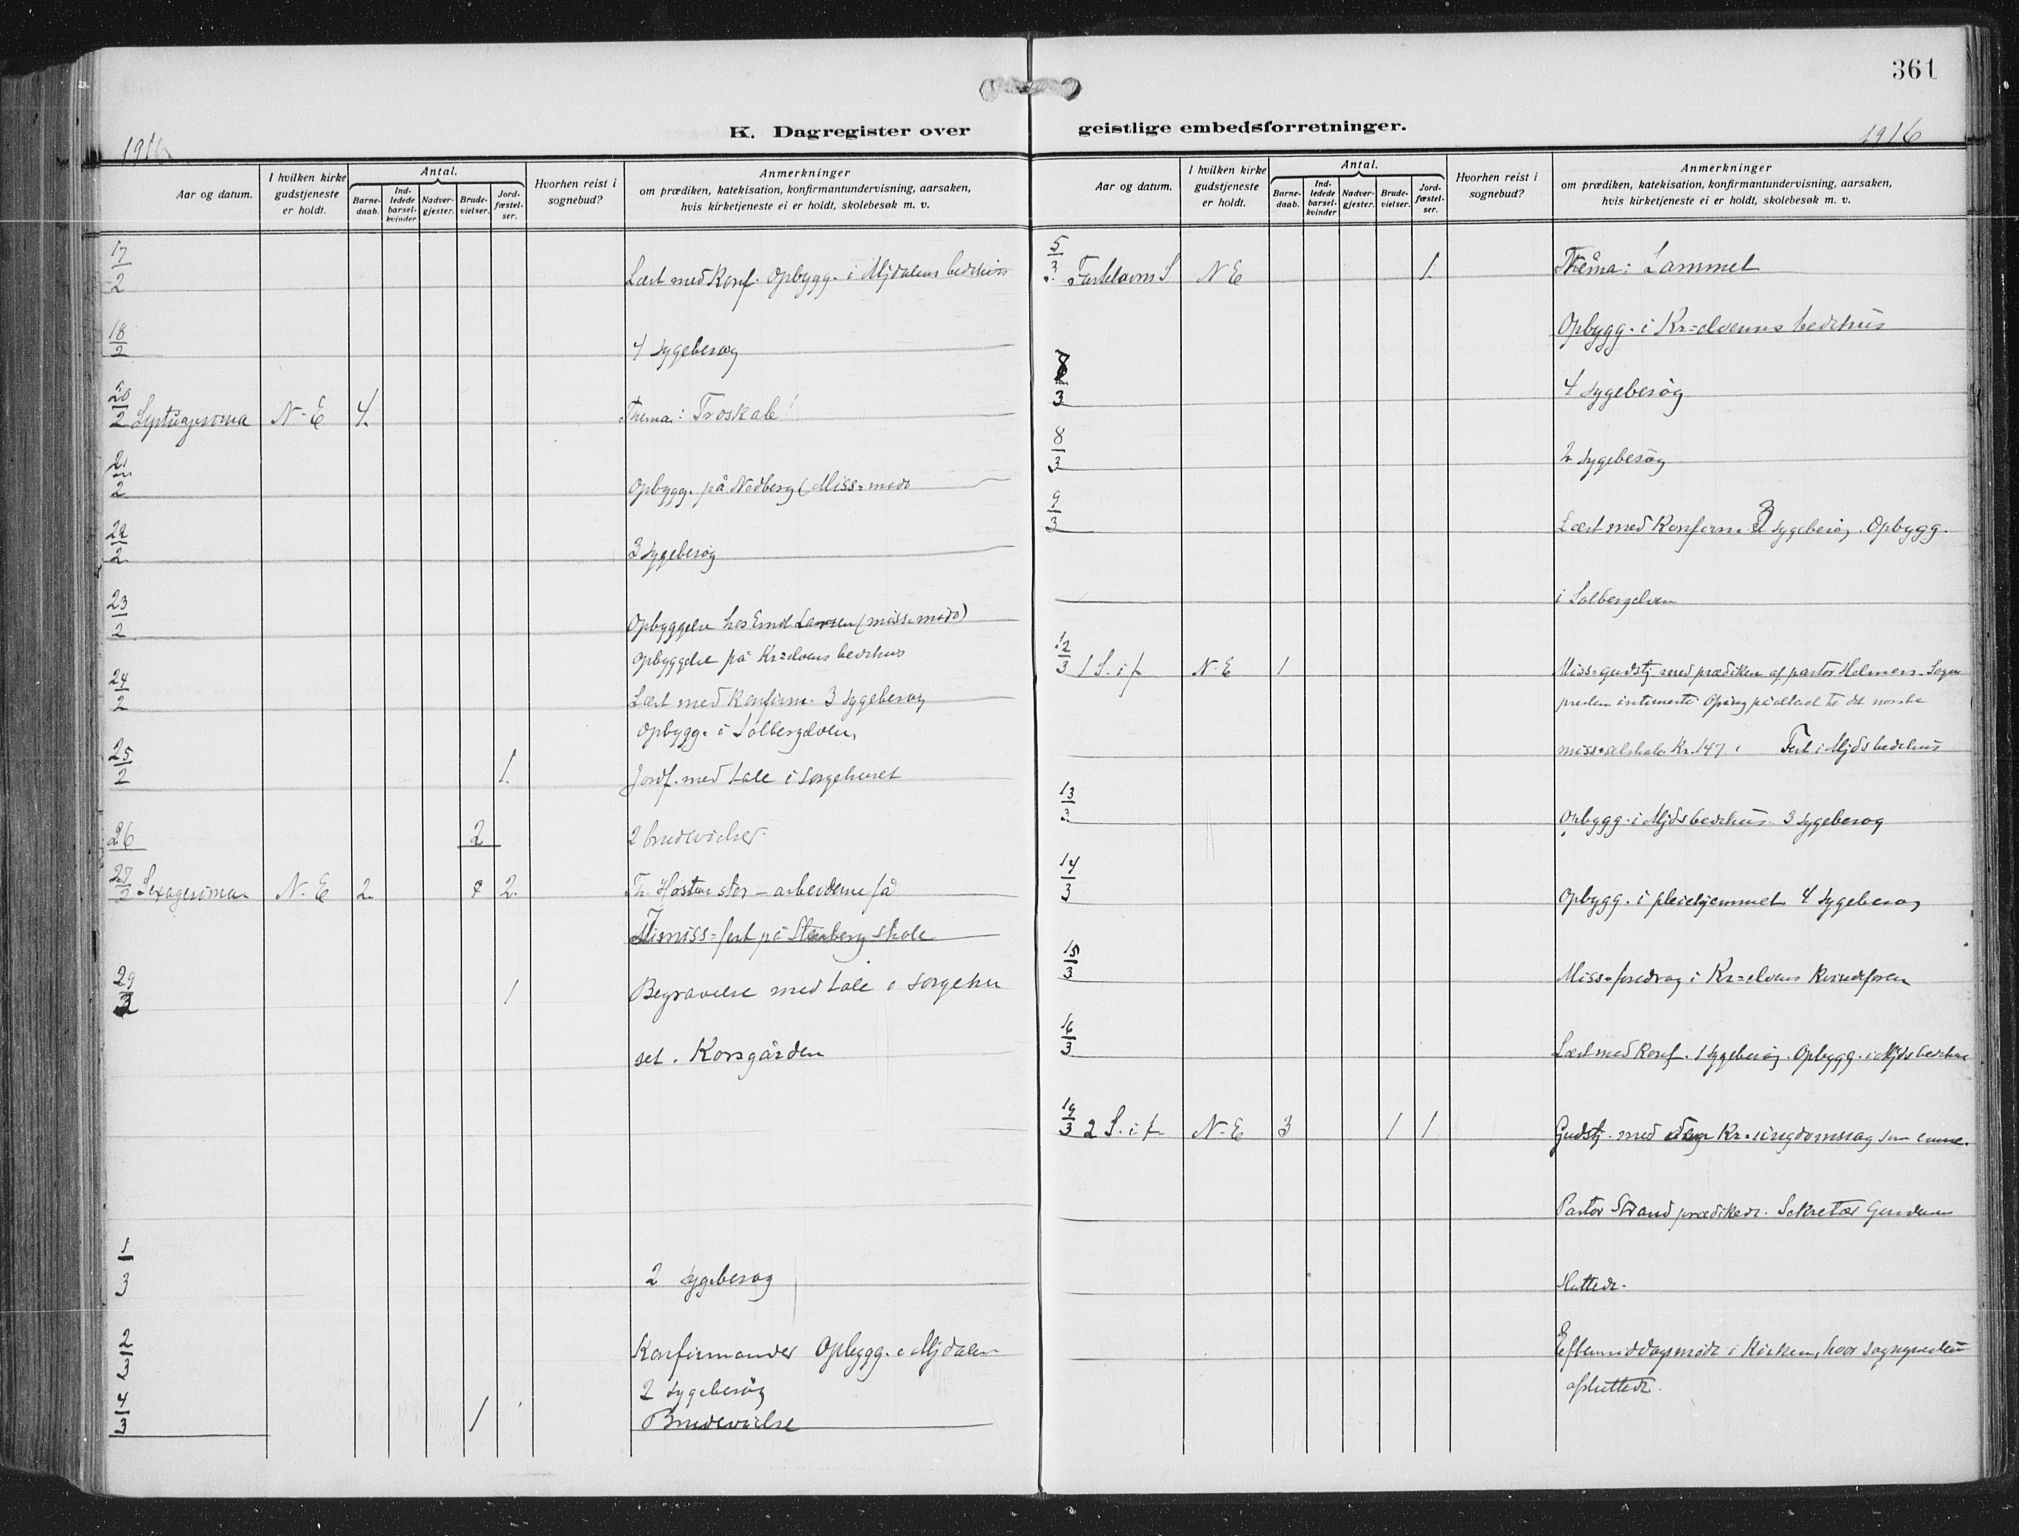 361
K. Dagregister over geistlige embedsforretninger.
1916
1916
Aar og datum.
I hvilken kirke gudstjeneste er holdt.
Antal.
Barnedaab.
Indledede barselkvinder
Nadvergjester.
Brudevielser.
Jordfæstelser.
Hvorhen reist i sognebud?
Anmerkninger
om prædiken, katekisation, konfirmantundervisning, aarsaken,
hvis kirketjeneste ei er holdt, skolebesøk m. v.
17/2 Læst med Konf. Opbygg. i Mjdalens bedehus
18/2 4 sygebesøg
20/2 Septuagesima N-E 4. Thema: Troskab!
21/2 Opbygg. på Nedberg (Miss=møde
22/2 3 sygebesøg
23/2 Opbyggelse hos Emil Larsen (miss=møde)
Opbyggelse på Kr=elvens bedehus
24/2 Læst med Konfirm. 3 sygebesøg
Opbygg. i Solbergelven,
25/2 1. Jordf. med tale i sørgehuset
26 2 2 brudevielser.
27/2 Sexagesima N. E 2. 2. Th. Høsten stor – arbeiderne få
miss=fest på Stenberg skole
29/2 1 Begravelse med tale i sørgehu
set. Korsgården
1/3 2 sygebesøg
2/3 Konfirmander Opbygg. i Mjdalen
2 sygebesøg
4/3 1 Brudevielse
Aar og datum.
I hvilken kirke gudstjeneste er holdt.
Antal.
Barnedaab.
Indledede barselkvinder
Nadvergjester.
Brudevielser.
Jordfæstelser.
Hvorhen reist i sognebud?
Anmerkninger
om prædiken, katekisation, konfirmantundervisning, aarsaken,
hvis kirketjeneste ei er holdt, skolebesøk m. v.
5/3 Fastelavns S N E 1. Thema: Lammet
Opbygg. i Kr=elvens bedehus
/3 4 sygebesøg
8/3 2 sygebesøg
9/3 Læst med Konfirm. 3 sygebesøg. Opbygg.
i Solbergelven
12/3 1 S. i f. N. E 1 Miss=gudstj med prædiken af pastor Holmen. Sogne
presten Ofring på alteret til det norske
miss=selskab Kr. 147. Fest i Mjds bedehus
13/3 Opbygg. i Mjds bedehus. 3 sygebesøg
14/3 Opbygg. i pleiehjemmet 4 sygebesøg
15/3 Miss=foredrag i Kr=elvens Kvindeforen
16/3 Læst med Konf. 1 sygebesøg. Opbygg. i Mjds bedehus
19/3 2 S. i f. N-E 3 1 1 Gudstj. med Kr=ungdomssag som emne.
Pastor Strand prædikede. Sekretær
sluttede.
Eftermiddagsmøde i Kirken, hvor sognepresten
afsluttede.